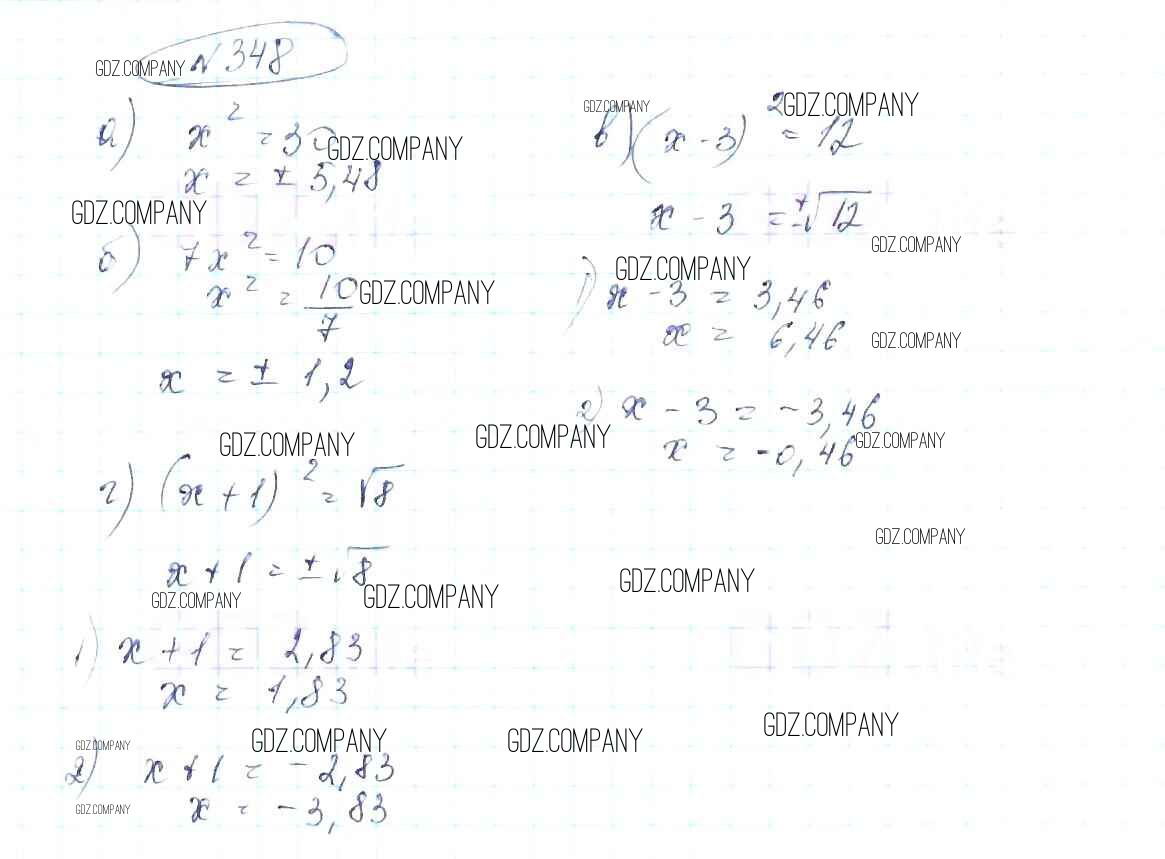 GDZ.COMPANY №348
а) x² = 30 GDZ.COMPANY
x = ± 5,48
GDZ.COMPANY
б) 7x² = 10
x² = 10/7 GDZ.COMPANY
x = ± 1,2
GDZ.COMPANY
г) (x + 1)² = √8
x + 1 = ± √8
GDZ.COMPANY GDZ.COMPANY
1) x + 1 = 2,83
x = 1,83
GDZ.COMPANY GDZ.COMPANY GDZ.COMPANY
2) x + 1 = - 2,83
GDZ.COMPANY x = - 3,83
GDZ.COMPANY GDZ.COMPANY
в) (x - 3)² = 12
x - 3 = ± √12
GDZ.COMPANY
GDZ.COMPANY
1) x - 3 = 3,46
x = 6,46 GDZ.COMPANY
2) x - 3 = - 3,46
GDZ.COMPANY x = -0,46 GDZ.COMPANY
GDZ.COMPANY
GDZ.COMPANY
GDZ.COMPANY